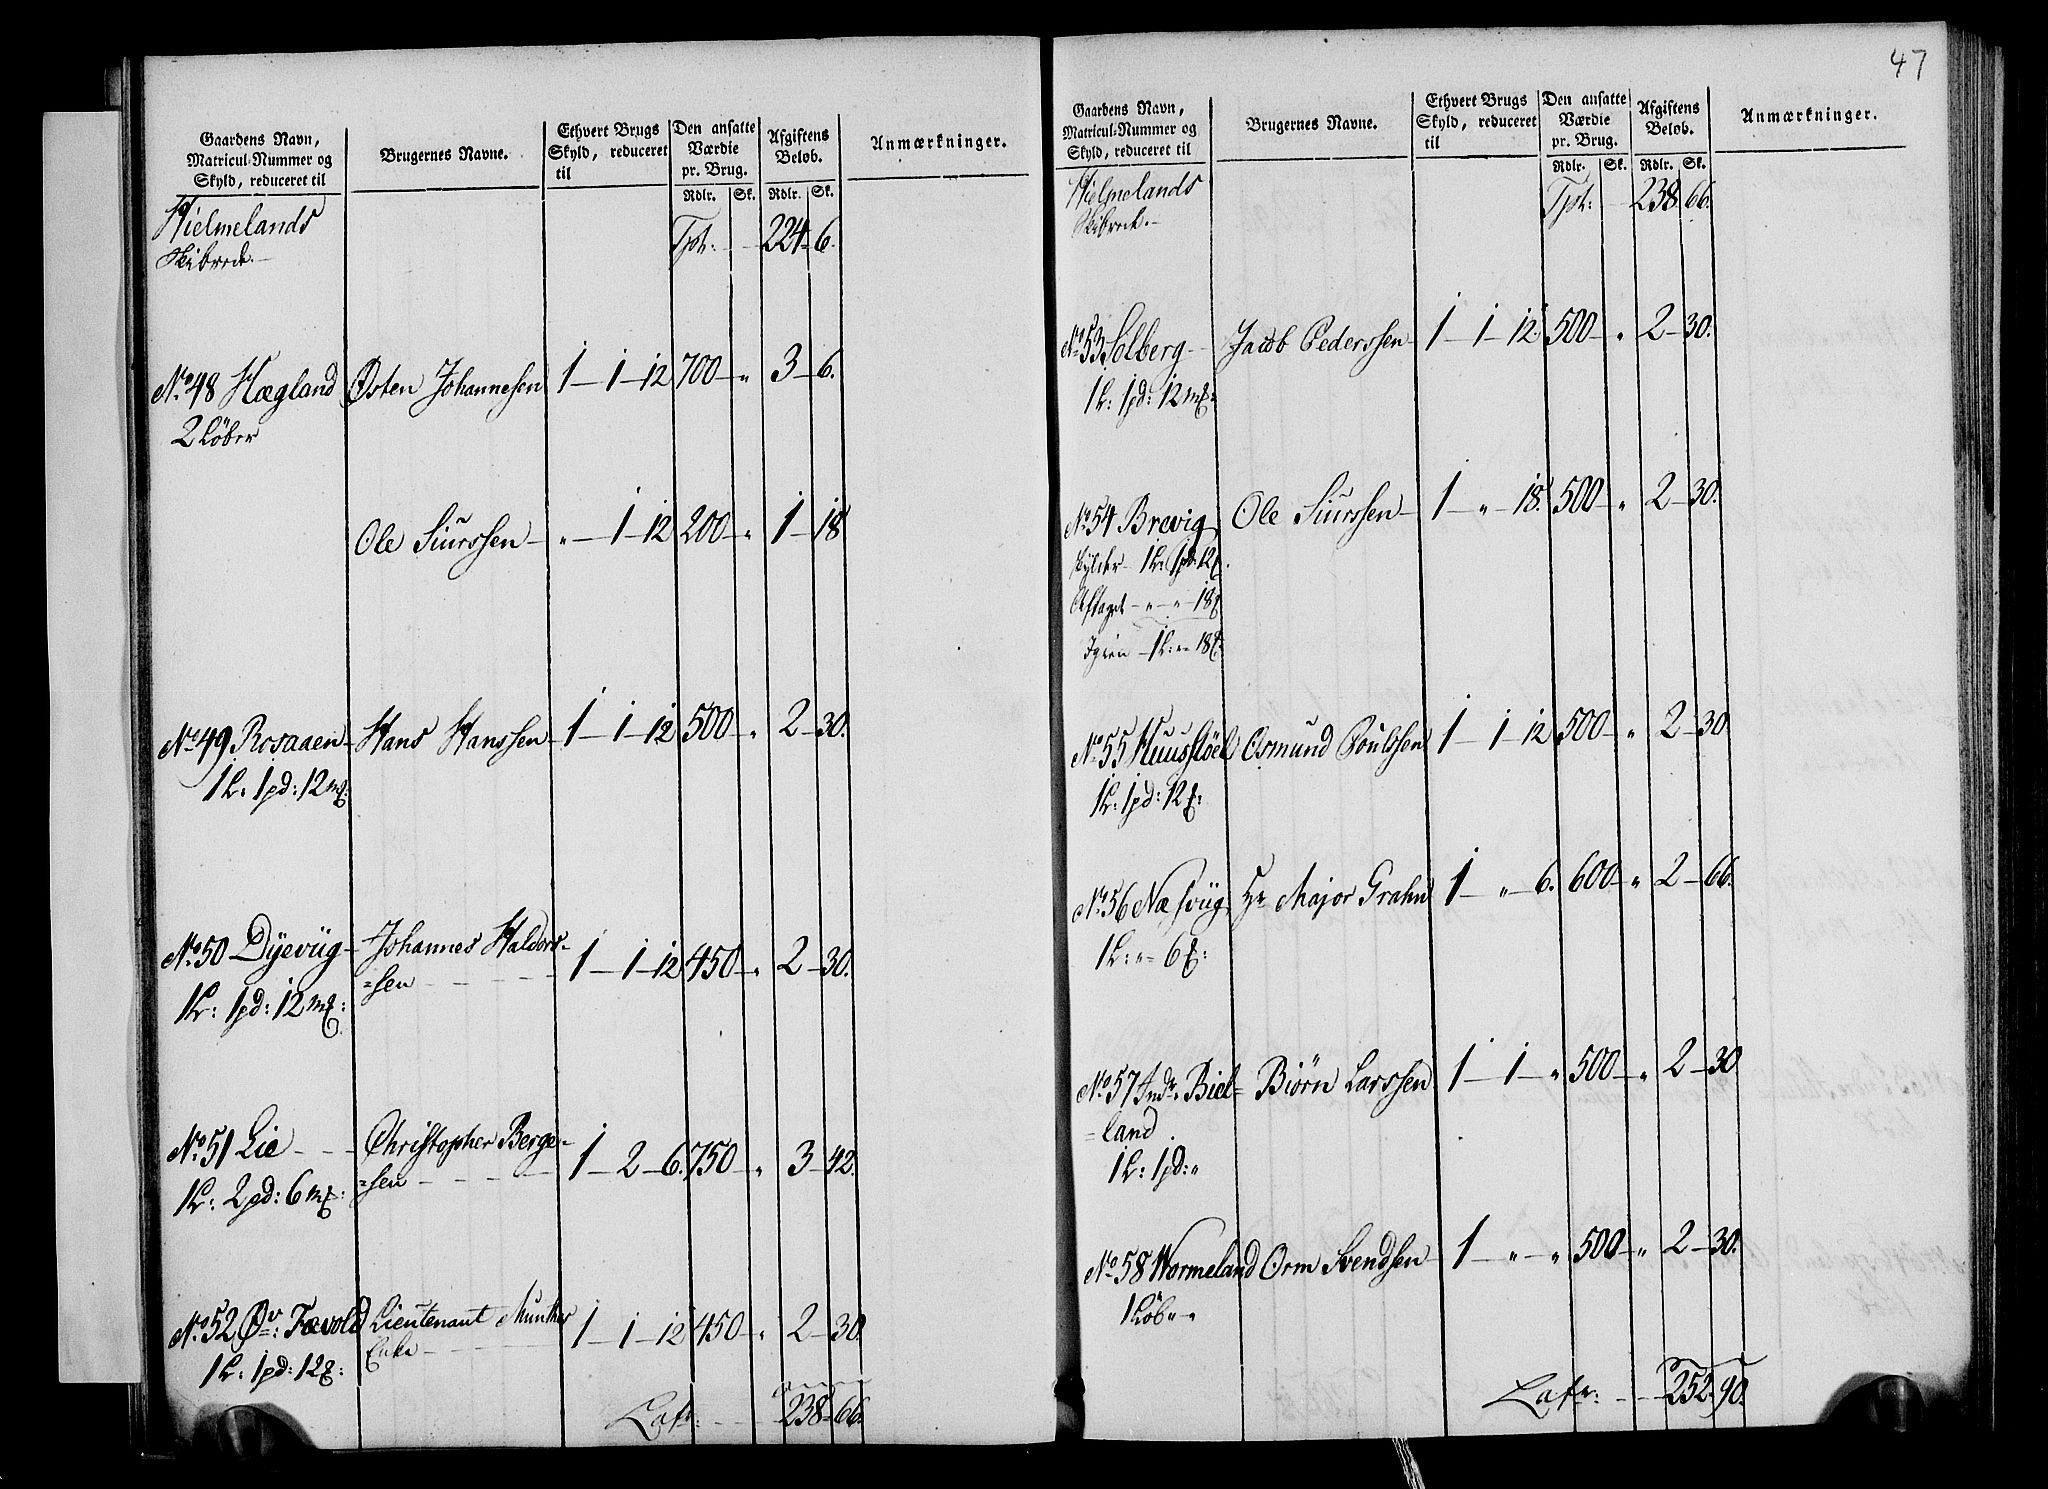 Gaardens Navn, Matricul-Nummer og Skyld, reduceret til | Brugernes Navne. | Ethvert Brugs Skyld, reduceret til | Den ansatte Værdie pr. Brug. | Afgiftens Beløb. | Anmærkninger.
Rdlr. | Sk. | Rdlr. | Sk.
Hielmelands Tpt: — 224 — 6.
Skibrede. —
No. 48 Hægland Østen Johannesen 1 — 1 — 12 700 — „ 3 — 6.
2 Löber
Ole Siurssen — „ — 1 — 12 200 — „ 1 — 18
No. 49 Rosaaen — Hans Hanssen — 1 — 1 — 12 500 — „ 2 — 30.
1 L: 1 pd: 12 mg:
No. 50 Dÿevüg — Johannes Haldors= 1 — 1 — 12 450 — „ 2 — 30.
=sen — — —
1 L: 1 pd: 12 mg:
No. 51 Lie — — — Christopher Berge= 1 — 2 — 6. 750 — „ 3 — 42.
=sen — — — —
1 L: 2 pd: 6 mg:
No. 52 Øv: Fævold Lieutenant Munthes 1 — 1 — 12 450 — „ 2 — 30.
Enke — — —
1 L: 1 pd: 12 g:
Latr: — — 238 — 66.
47
Gaardens Navn, Matricul-Nummer og Skyld, reduceret til | Brugernes Navne. | Ethvert Brugs Skyld, reduceret til | Den ansatte Værdie pr. Brug. | Afgiftens Beløb. | Anmærkninger.
Rdlr. | Sk. | Rdlr. | Sk.
Hielmelands Tpt: — 238 66.
Skibrede. —
No. 53 Solberg — Jacob Pederssen 1 — 1 — 12. 500 — „ 2 — 30.
1 L: 1 pd: 12 mg:
No. 54 Brevig Ole Siurssen — 1 — „ — 18. 500 — „ 2 — 30.
Skylder — 1 L: 1 pd: 12 g.
Aftaget — „ — „ — 18 g
Igien — 1 L: „ — 18 g:
No. 55 Huusstöel Osmund Poulssen 1 — 1 — 12 500 — „ 2 — 30
1 L: 1 pd: 12 g:
No. 56 Næsvüg Hr Major Grahn 1 — „ — 6. 600 — „ 2 — 66.
1 L: „ — 6 g:
No. 57 Indr. Biel= Biörn Larssen 1 — 1 — „ 500 — „ 2 — 30
=land
1 L: 1 pd: „
No. 58 Wormeland Orm Svendsen — 1 — „ — „ 500 — „ 2 — 30.
1 Löb „ — „
Latr: — — 252. 90.